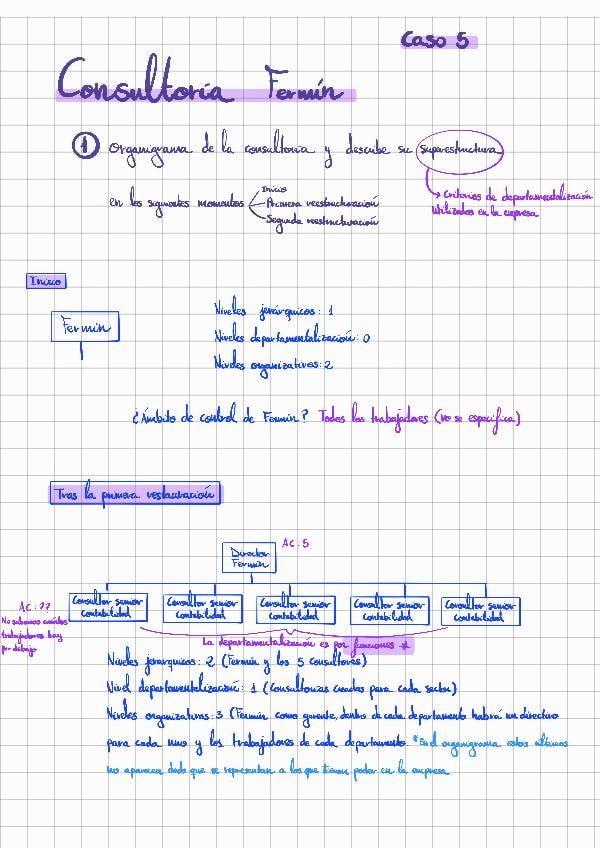 Caso 5
Consultoría Fermín
1 Organigrama de la consultoria y describe su superestructura
en los siguientes momentos
Inicio
Primera reestructuración
Segunda reestructuración
Criterios de departamentalización
utilizados en la empresa
Inicio
Fermín
Niveles jerárquicos: 1
Niveles departamentalización: 0
Niveles organizativos: 2
¿Ámbito de control de Fermín? Todos los trabajadores (no se especifica)
Tras la primera restauración
Director
Fermín
AC: 5
Consultor senior
contabilidad
Consultor senior
contabilidad
Consultor senior
contabilidad
Consultor senior
contabilidad
Consultor senior
contabilidad
AC: ??
No sabemos cuántos
trabajadores hay
por debajo
La departamentalización es por funciones *
Niveles jerarquicos: 2 (Fermín y los 5 consultores)
Nivel departamentalización: 1 (Consultorías creadas para cada sector)
Niveles organizativos: 3 (Fermín como gerente, dentro de cada departamento habrá un directivo
para cada uno y los trabajadores de cada departamento *En el organigrama estos últimos
no aparecen dado que se representan a los que tienen poder en la empresa